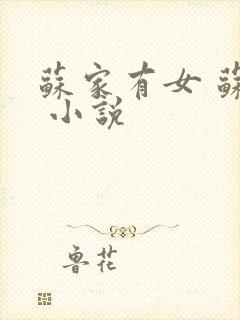 蘇家有女 蘇
小說
魯花